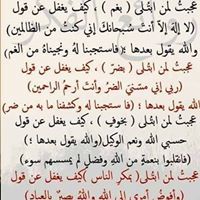 عجبتُ لمن ابتُلي ( بغم ) ، كيف يغفل عن قول
(لا إلهَ إلاَّ أنتَ سُبحانكَ إني كنتُ من الظالمين)
والله يقول بعدها ؛ (فاستجبنا لهُ ونجيناهُ من الغم)
عجبتُ لمن ابتُلي ( بضرّ ) ، كيف يغفل عن قول
(ربي إني مسّنيَ الضرُّ وأنتَ أرحمُ الراحمين)
الله يقول بعدها ؛ (فاستجبنا له وكشفنا ما به من ضر)
عجبتُ لمن ابتُلي ( بخوفٍ ) ، كيف يغفل عن قول
(حسبي الله ونعم الوكيل)والله يقول بعدها ؛
(فانقلبوا بنعمةٍ من اللهِ وفضلٍ لم يمسسهم سوء)
عجبتُ لمن ابتُلي (بمكرِ الناس )كيف يغفل عن قول
(وأفوضُ أمري إلى اللهِ واللهُ بصيرٌ بالعباد)